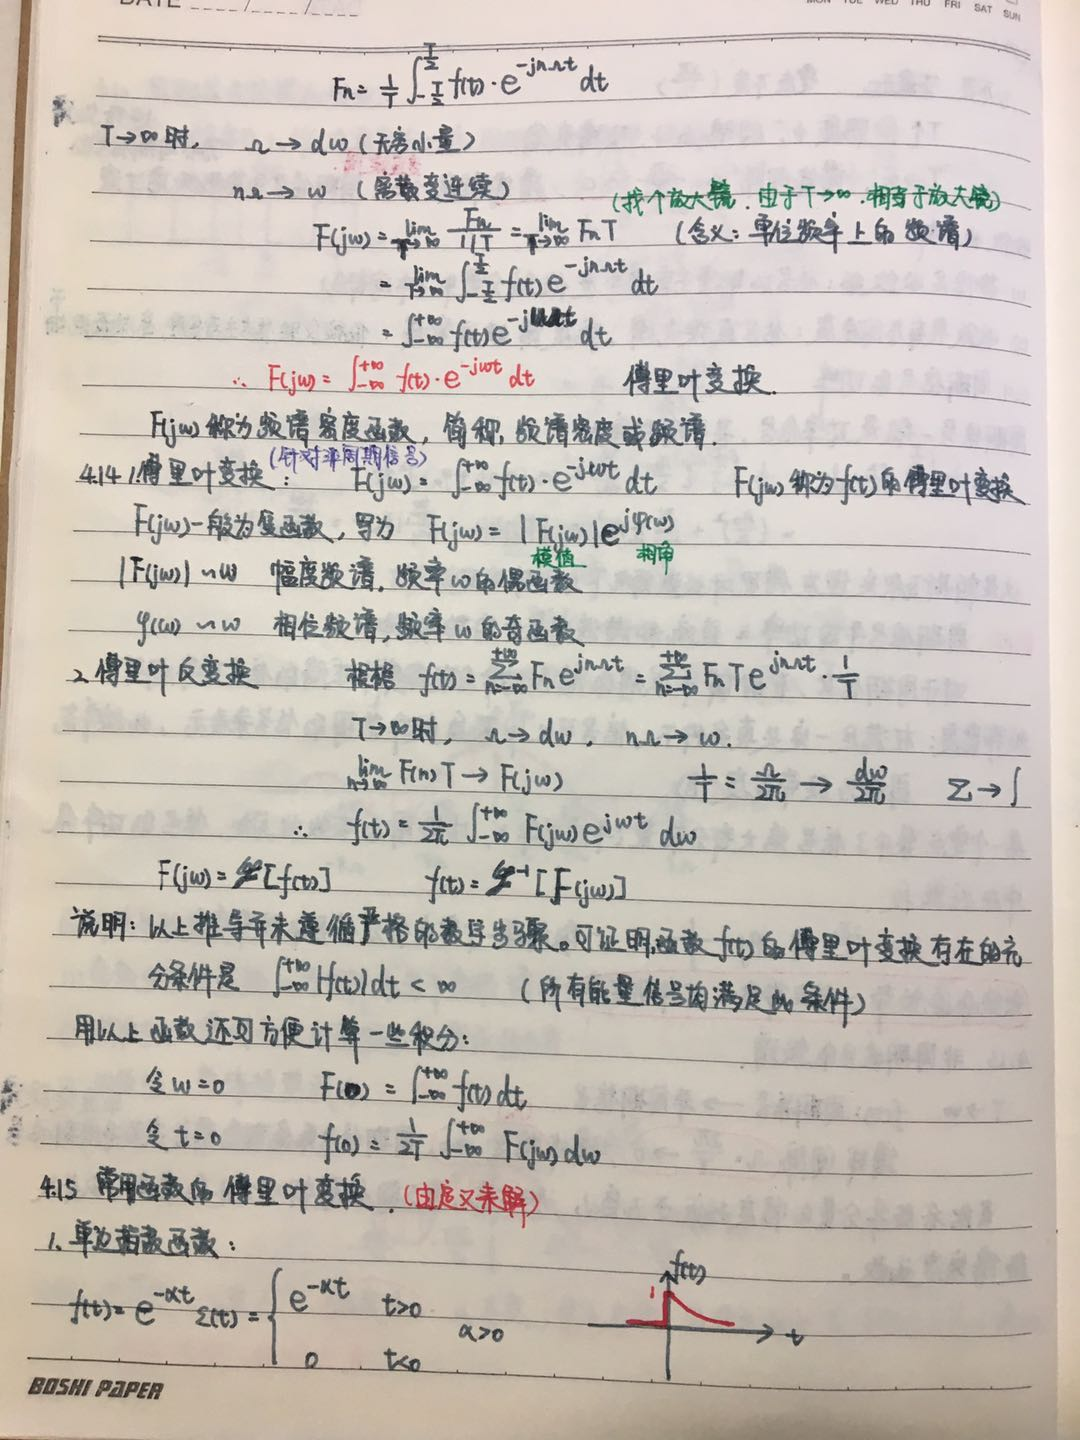 DATE
MON TUE WED THU FRI SAT SUN
Fn = 1/T ∫_{-T/2}^{T/2} f(t)·e^{-jnΩt} dt
T→∞时, Ω→dω (无穷小量)
nΩ→ω (离散变连续)
(找个放大镜.由于T→∞.相当于放大镜)
F(jω) = lim_{T→∞} Fn/(1/T) = lim_{T→∞} FnT (含义:单位频率上的频谱)
= lim_{T→∞} ∫_{-T/2}^{T/2} f(t)e^{-jnΩt} dt
= ∫_{-∞}^{+∞} f(t)e^{-jωt} dt
∴ F(jω) = ∫_{-∞}^{+∞} f(t)·e^{-jωt} dt 傅里叶变换.
F(jω)称为频谱密度函数,简称,频谱密度或频谱.
(针对非周期信号)
4.14 1.傅里叶变换: F(jω) = ∫_{-∞}^{+∞} f(t)·e^{-jωt} dt F(jω)称为f(t)的傅里叶变换
F(jω)一般为复函数,写为 F(jω) = |F(jω)|e^{jφ(ω)}
模值 相角
|F(jω)|~ω 幅度频谱,频率ω的偶函数
φ(ω)~ω 相位频谱,频率ω的奇函数
2.傅里叶反变换 根据 f(t) = ∑_{n=-∞}^{+∞} Fn e^{jnΩt} = ∑_{n=-∞}^{+∞} FnTe^{jnΩt}·1/T
T→∞时, Ω→dω, nΩ→ω.
lim_{n→∞} F(n)T→F(jω) 1/T = Ω/2π → dω/2π ∑→∫
∴ f(t) = 1/2π ∫_{-∞}^{+∞} F(jω)e^{jωt} dω
F(jω) = ℱ[f(t)] f(t) = ℱ^{-1}[F(jω)]
说明:以上推导并未遵循严格的数学步骤。可证明,函数f(t)的傅里叶变换存在的充
分条件是 ∫_{-∞}^{+∞}|f(t)|dt < ∞ (所有能量信号均满足此条件)
用以上函数还可方便计算一些积分:
令ω=0 F(0) = ∫_{-∞}^{+∞} f(t)dt
令t=0 f(0) = 1/2π ∫_{-∞}^{+∞} F(jω)dω
4.15 常用函数的傅里叶变换.(由定义来解)
1.单边指数函数:
f(t)
1
f(t) = e^{-αt}ε(t) = { e^{-αt} t>0
α>0
t
0 t<0
BOSHI PAPER